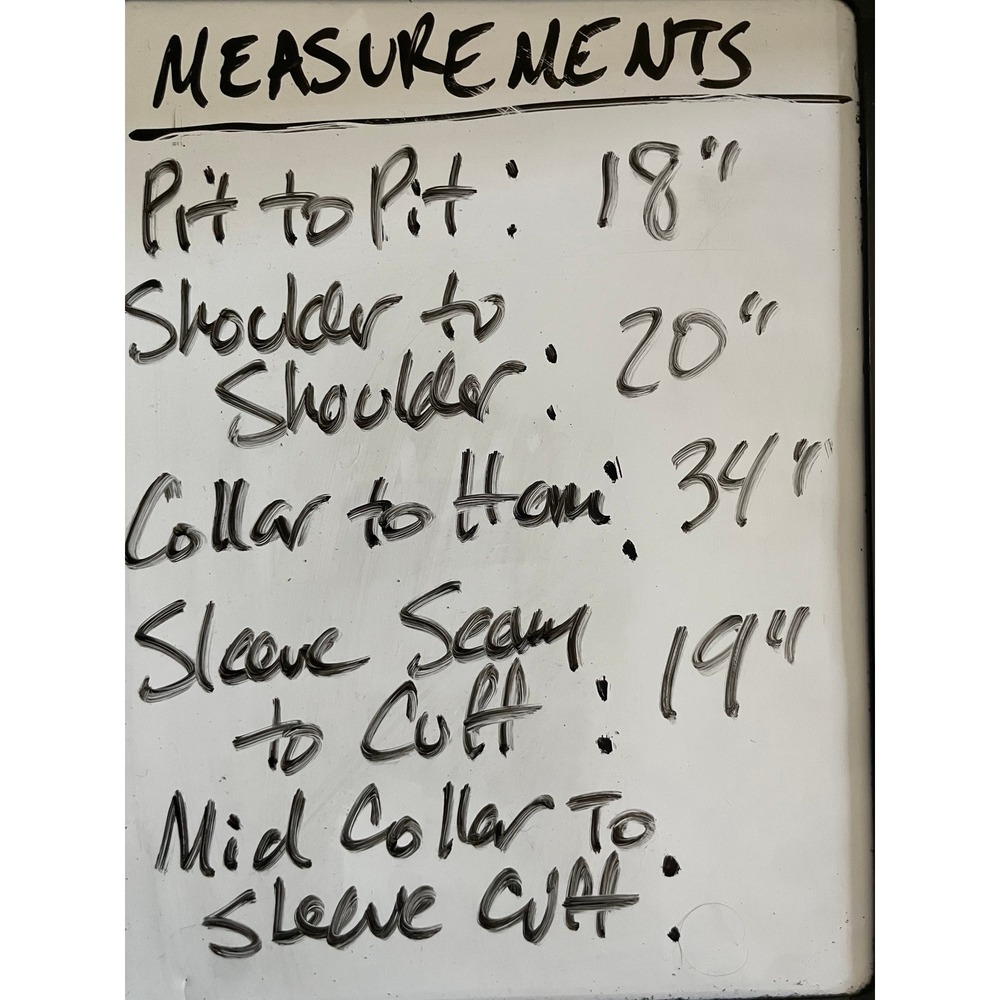 MEASUREMENTS
Pit to Pit: 18"
Shoulder to
Shoulder: 20"
Collar to Hem: 34"
Sleeve Seam
to Cuff: 19"
Mid Collar To
Sleeve Cuff: